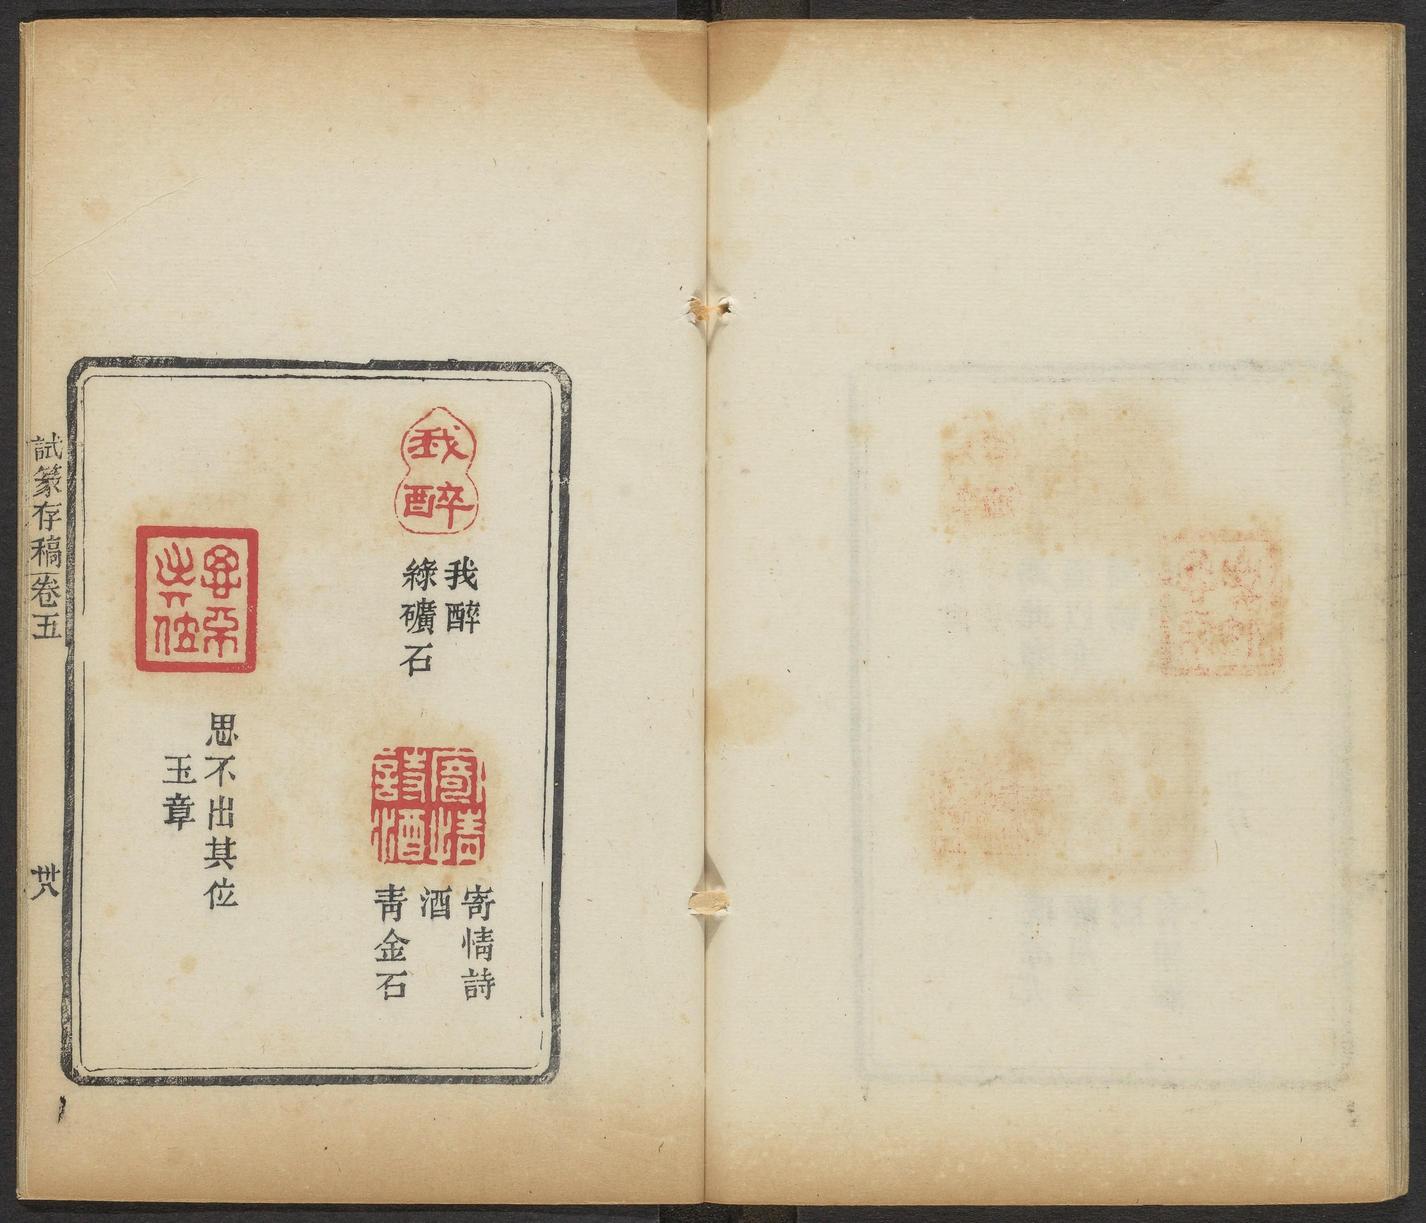 我醉
我醉
綠礦石
寄情
詩酒
寄情詩
酒
青金石
思不出其位
玉章
試篆存稿卷五
卅八